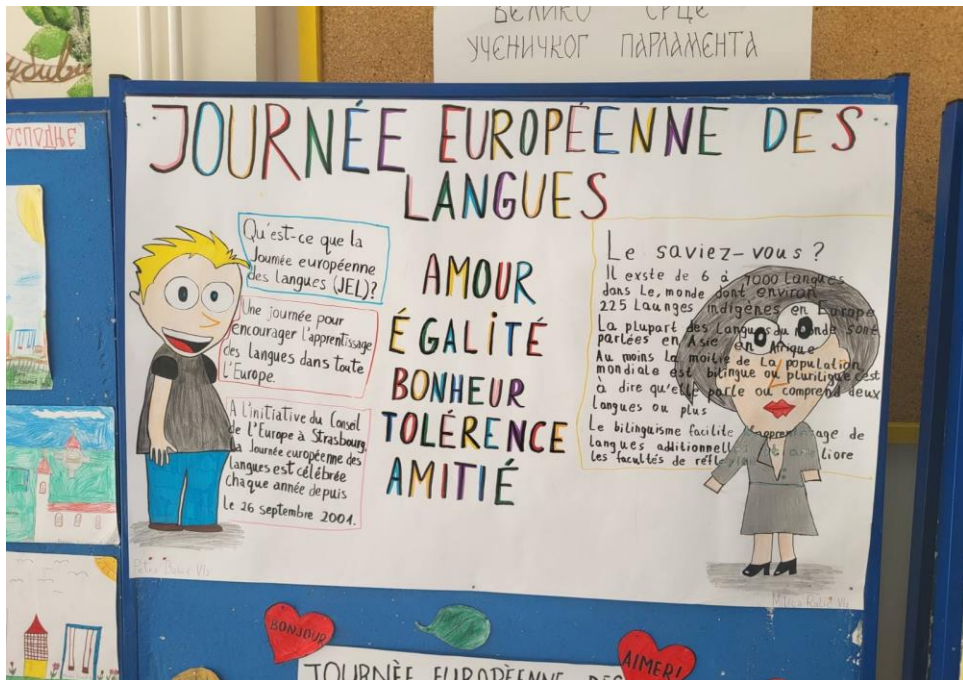 ВЕЛИКО СРЦЕ
УЧЕНИЧКОГ ПАРЛАМЕНТА
JOURNÉE EUROPÉENNE DES
LANGUES
Qu'est-ce que la
Journée européenne
des langues (JEL)?
Une journée pour
encourager l'apprentissage
des langues dans toute
l'Europe.
A l'initiative du Consel
de l'Europe à Strasbourg,
la Journée européenne des
langues est célébrée
chaque année depuis
le 26 septembre 2001.
AMOUR
ÉGALITÉ
BONHEUR
TOLÉRENCE
AMITIÉ
Le saviez-vous?
Il exste de 6 à 7000 Langues
dans Le, monde dont environ
225 Launges indigènes en Europe
La plupart des Langues du monde sont
parlées en Asie en Afrique
Au moins la moitie de La population
mondiale est bilingue ou plurilique c'est
à dire qu'elle parle ou comprend deux
Langues ou plus
Le bilinguisme facilite de
Langues aditionnelles
les facultés de
BONJOUR
AIMER!
JOURNÈE EUROPÈENNE DES